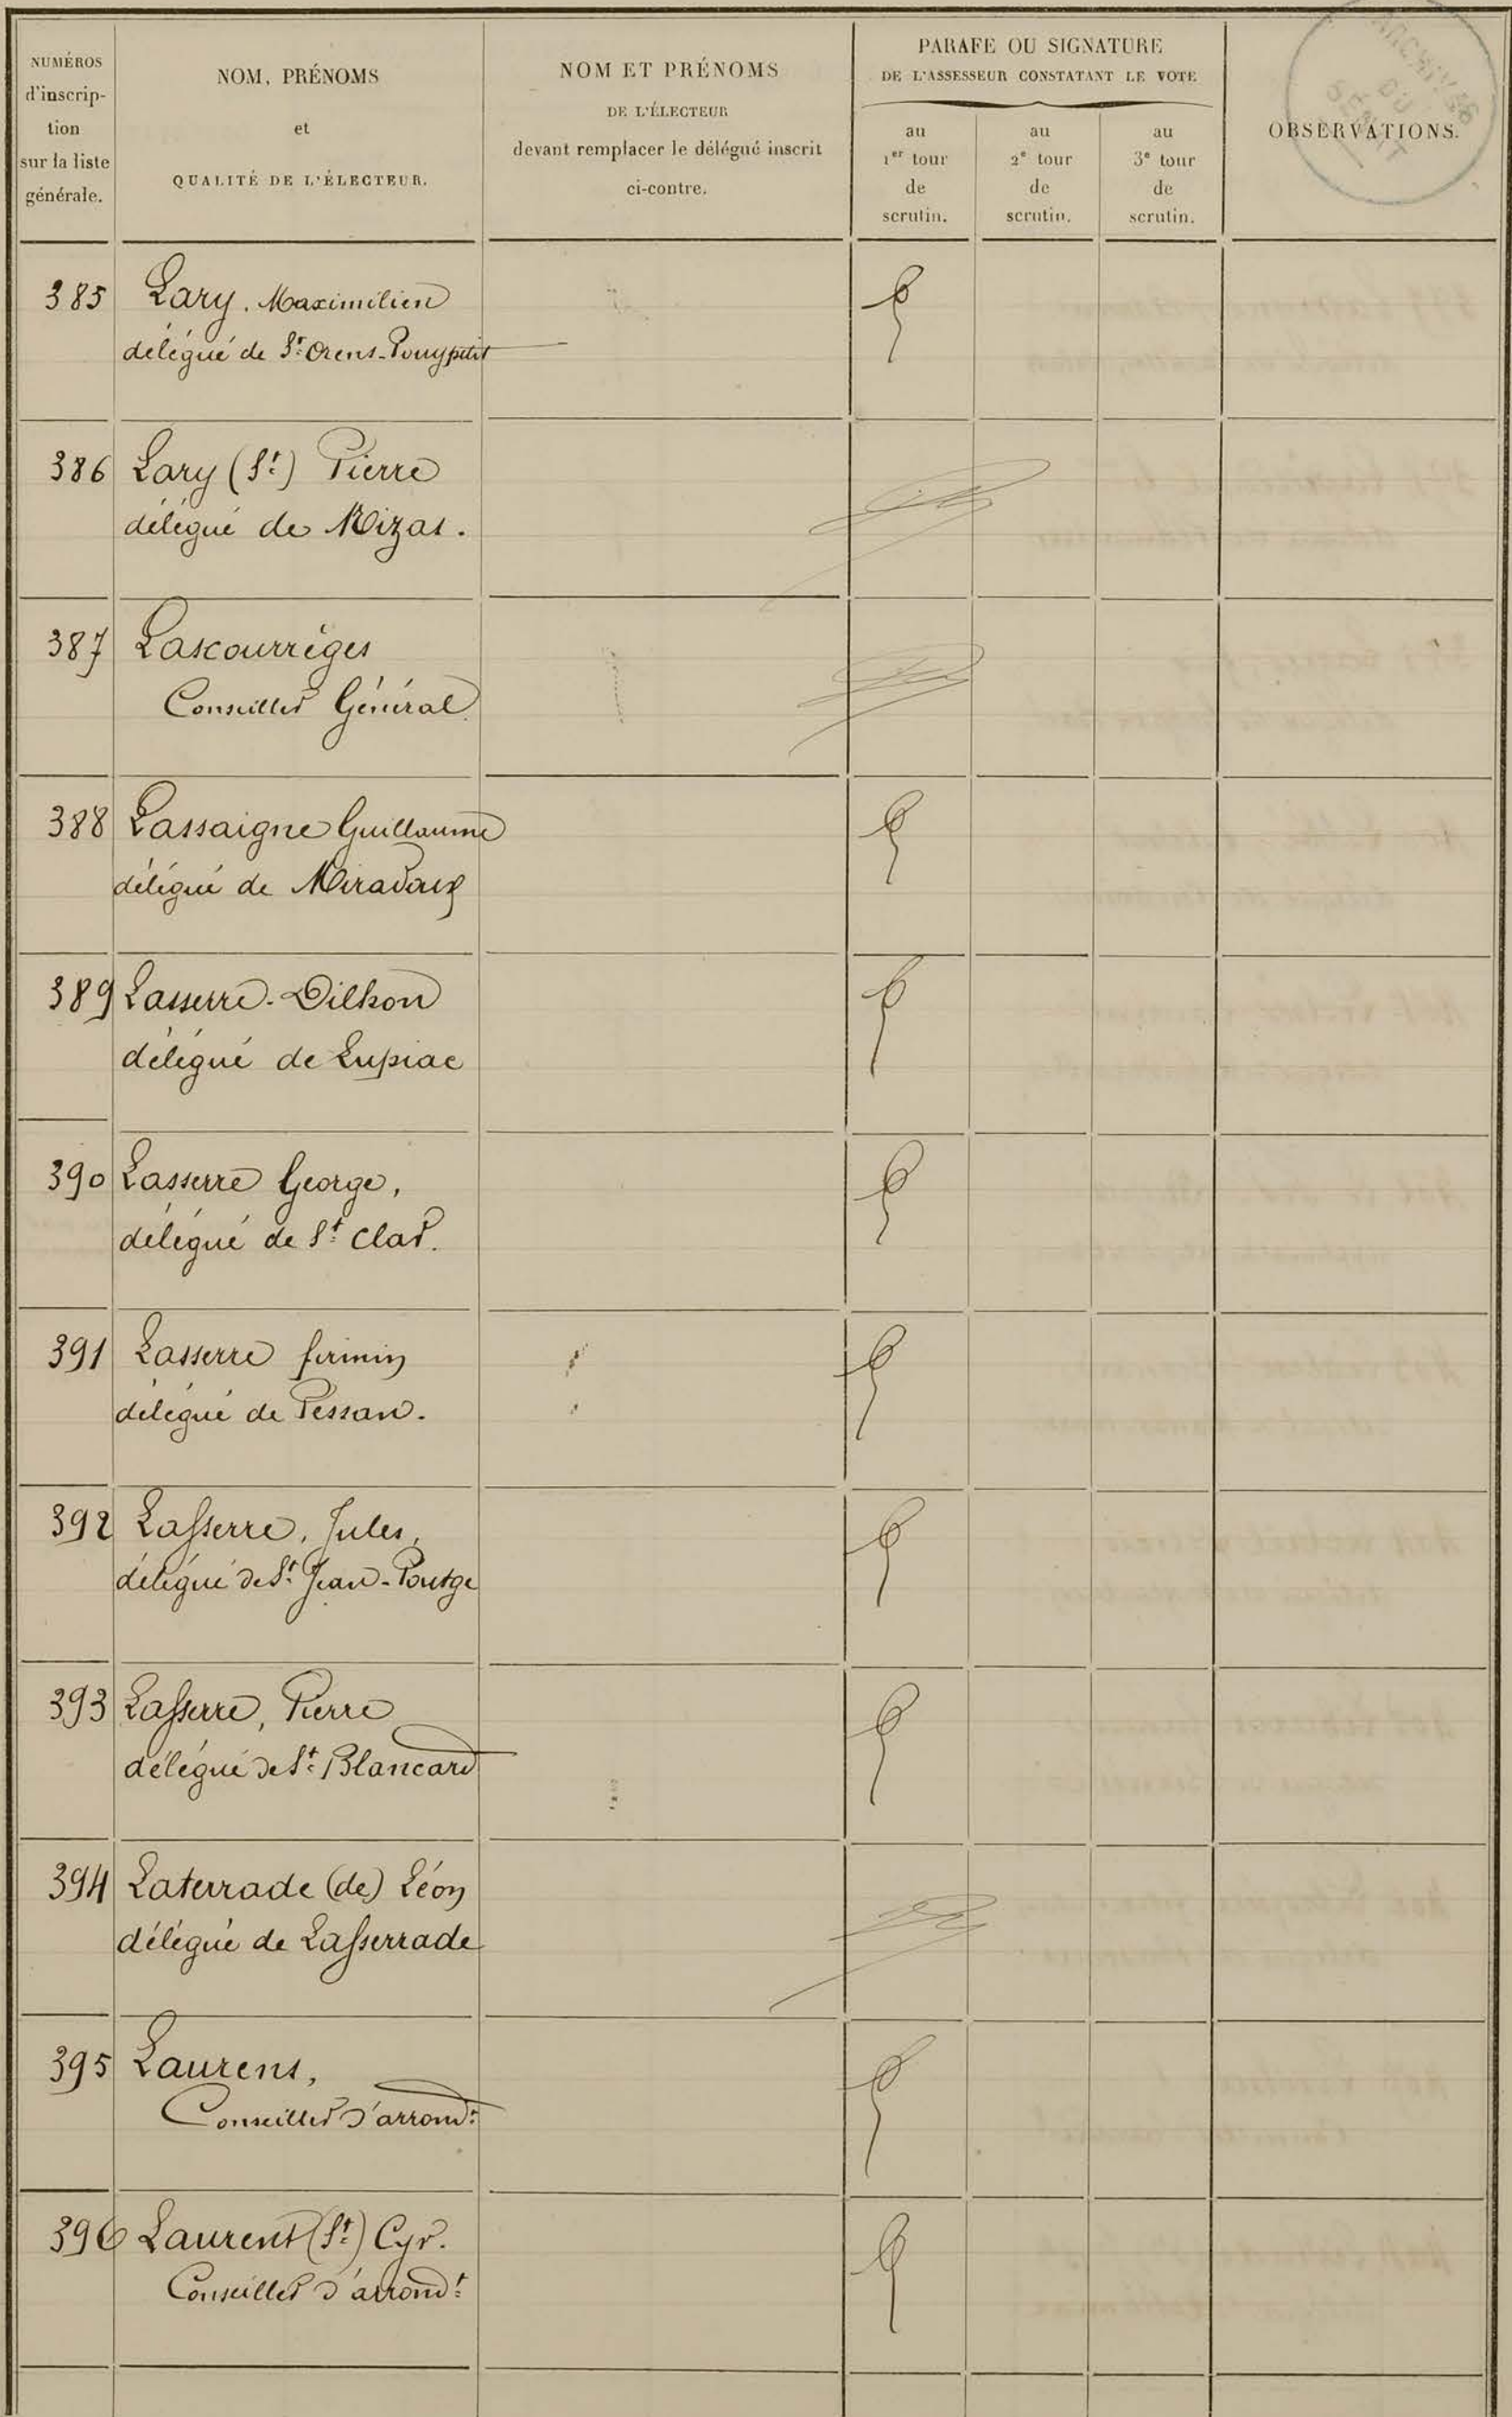 NUMÉROS
d'inscrip-
tion
sur la liste
générale.
NOM, PRÉNOMS
et
QUALITÉ DE L'ÉLECTEUR.
NOM ET PRÉNOMS
DE L'ÉLECTEUR
devant remplacer le délégué inscrit
ci-contre.
PARAFE OU SIGNATURE
DE L'ASSESSEUR CONSTATANT LE VOTE
au
1er tour
de
scrutin.
au
2e tour
de
scrutin.
au
3e tour
de
scrutin.
OBSERVATIONS.
ARCHIVES
DU
385 Lary. Maximilien
délégué de St. Orens-Pouypetit
386 Lary (St.) Pierre
délégué de Mizas.
387 Lascourrèges
Conseiller Général
388 Lassaigne Guillaume
délégué de Miradoux
389 Lasserre-Dilhon
délégué de Lupiac
390 Lasserre George,
délégué de St. Clar.
391 Lasserre firmin
délégué de Pessan.
392 Lasserre, Jules,
délégué de St. Jean-Poutge
393 Lasserre, Pierre
délégué de St. Blancard
394 Laterrade (de) Léon
délégué de Lasserrade
395 Laurens,
Conseiller d'arrondt.
396 Laurent (St.) Cyr.
Conseiller d'arrondt.